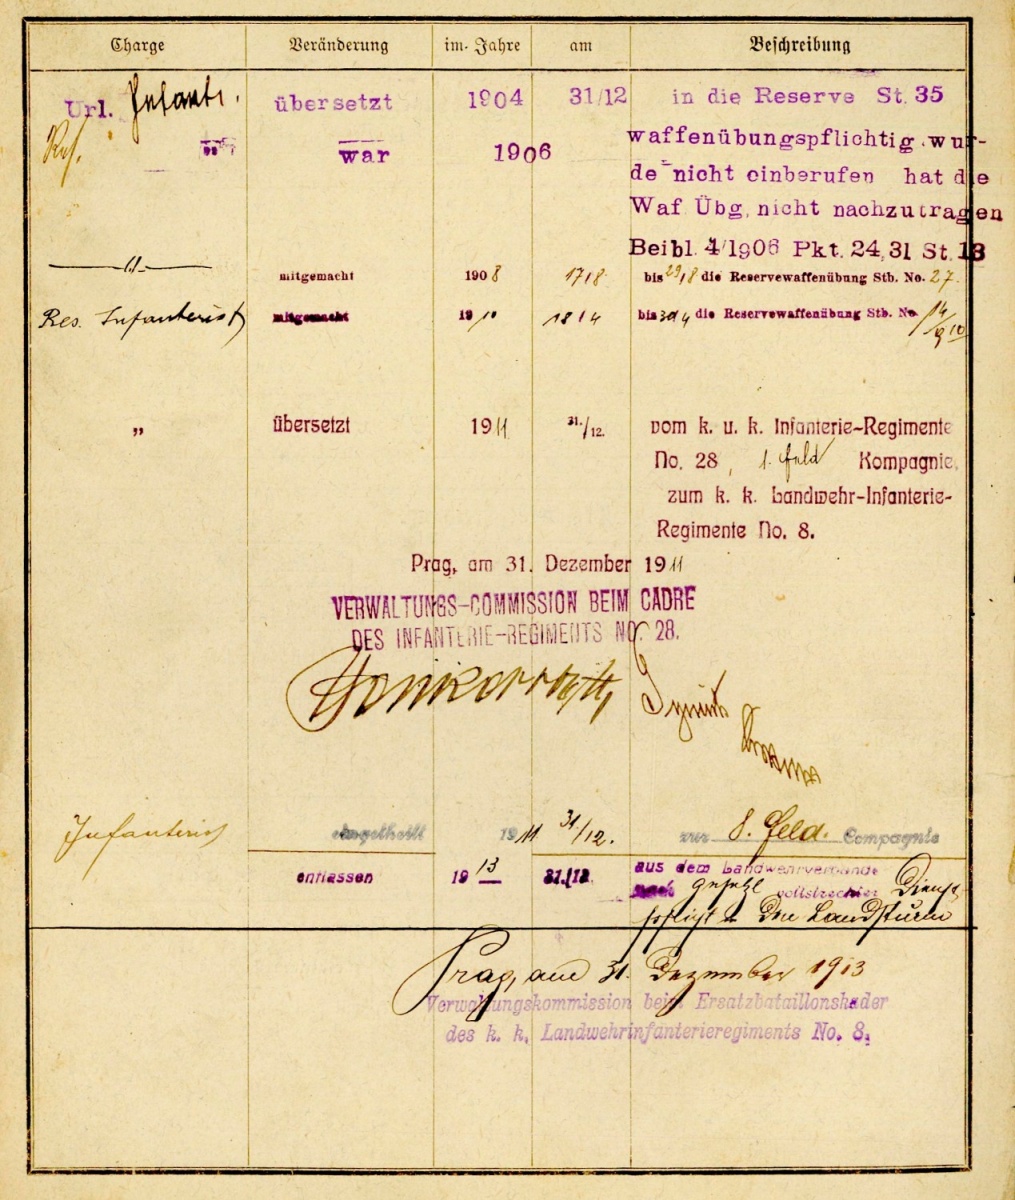 Charge Veränderung im Jahre am Beschreibung
Url. Infant. übersetzt 1904 31/12 in die Reserve St. 35
Res. " war 1906 waffenübungspflichtig wur-
de nicht einberufen hat die
Waf. Übg. nicht nachzutragen
Beibl. 4/1906 Pkt. 24,31 St. 13
mitgemacht 1908 17/8 bis 29/8 die Reservewaffenübung Stb. No. 27.
Res. Infanterist mitgemacht 1910 18/4 bis 30/4 die Reservewaffenübung Stb. No. 14/9 10
„ übersetzt 1911 31./12. vom k. u. k. Infanterie-Regimente
No. 28, 1. Feld Kompagnie,
zum k. k. Landwehr-Infanterie-
Regimente No. 8.
Prag, am 31. Dezember 1911
VERWALTUNGS-COMMISSION BEIM CADRE
DES INFANTERIE-REGIMENTS NO. 28.
Infanterist eingetheilt 1911 31/12. zur 8. Feld. Compagnie
entlassen 1913 31./12. aus dem Landwehrverbande
nach gesetzl vollstreckter Dienst-
pflicht
Landsturm
Prag, am 31. Dezember 1913
Verwaltungskommission beim Ersatzbataillonskader
des k. k. Landwehrinfanterieregiments No. 8.